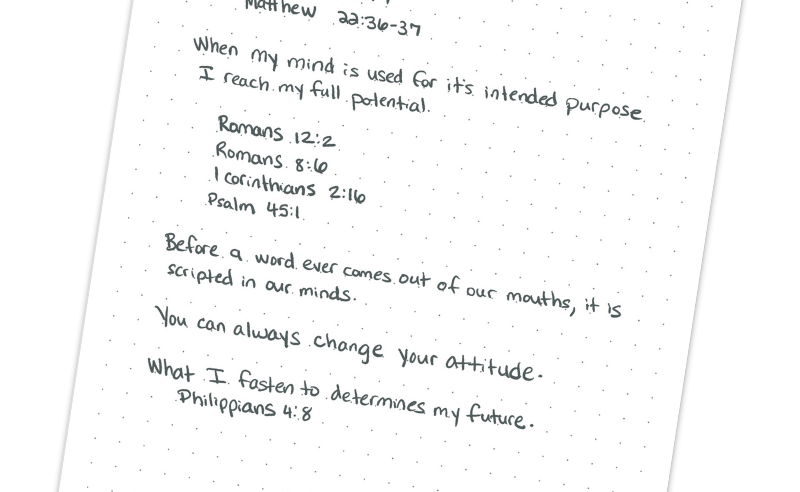 Matthew 22:36-37
When my mind is used for it's intended purpose
I reach my full potential.
Romans 12:2
Romans 8:6
1 Corinthians 2:16
Psalm 45:1
Before a word ever comes out of our mouths, it is
scripted in our minds.
You can always change your attitude.
What I fasten to determines my future.
Philippians 4:8